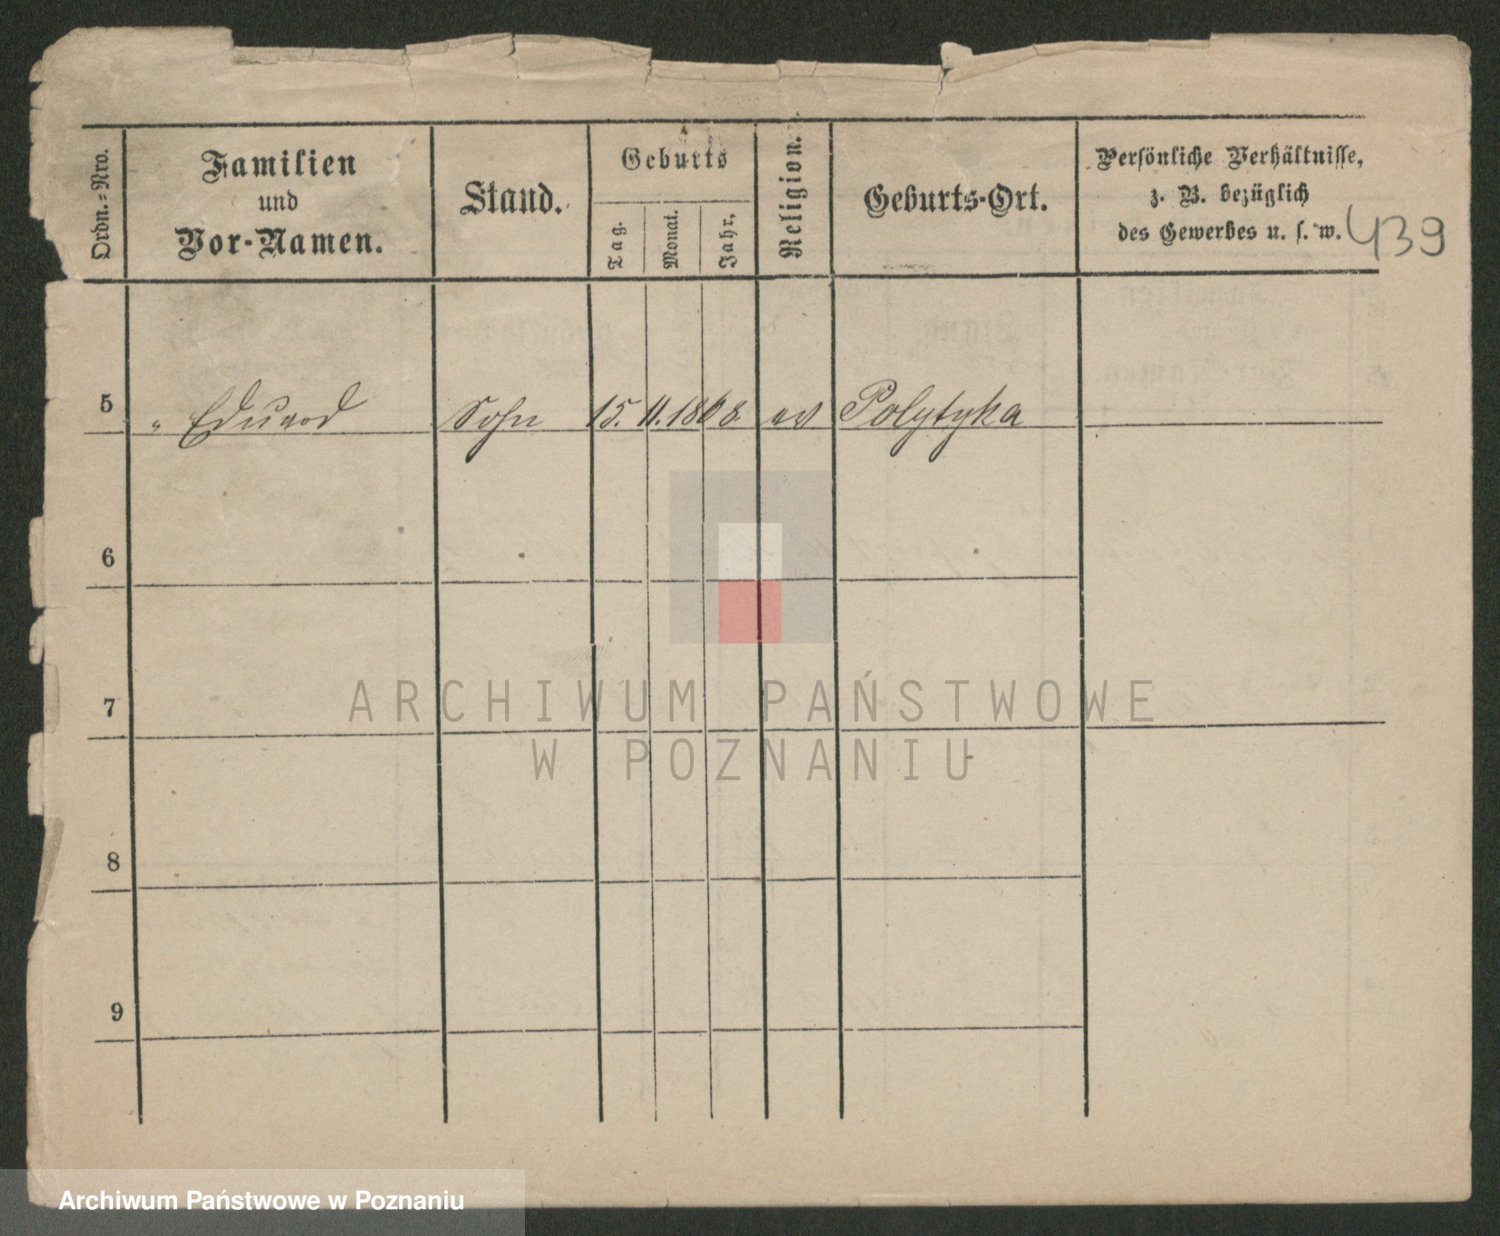 Ordn.=Nro.
Familien
und
Vor-Namen.
Stand.
Geburts
Tag.
Monat.
Jahr.
Religion.
Geburts-Ort.
Persönliche Verhältnisse,
z. B. bezüglich
des Gewerbes u. s. w.
439
5 " Eduard Sohn 15. 11. 1868 ev Polytyka
6
7
8
9
ARCHIWUM PAŃSTWOWE
W POZNANIU
Archiwum Państwowe w Poznaniu